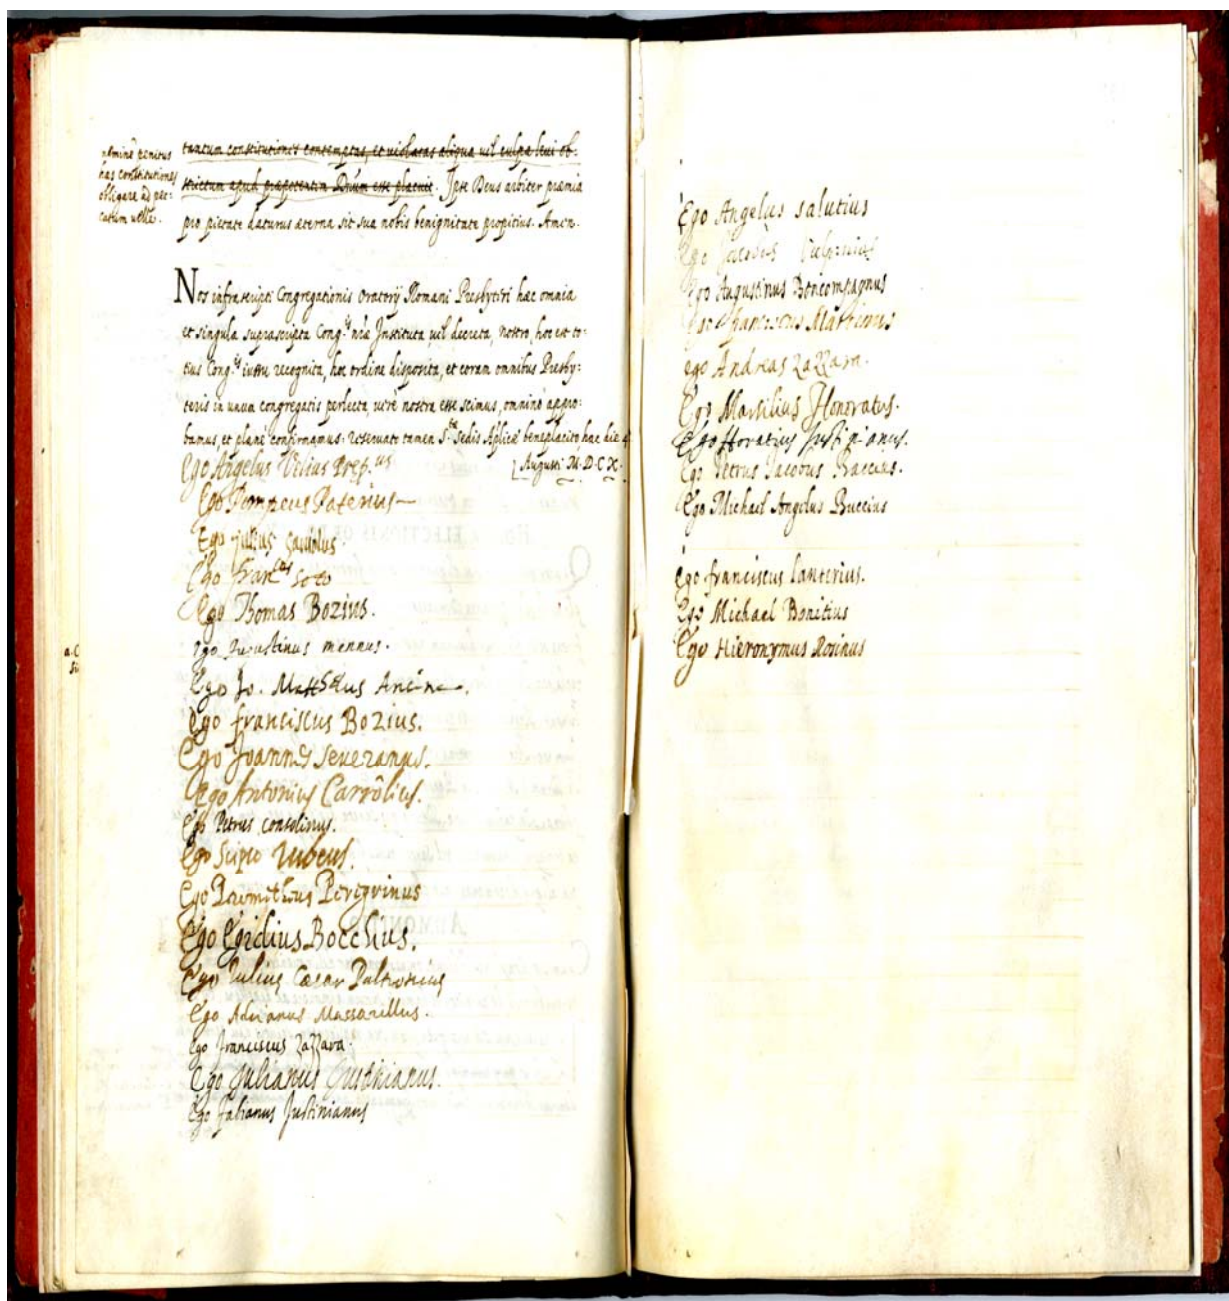 nemine penitus
has constitutiones
obligare ad pec=
catum velle.
tantum constitutiones contemptas, et violatas aliqua vel culpa levi ob=
strictum apud præpotentem Deum esse placuit. Ipse Deus arbiter præmia
pro pietate daturus æterna sit sua nobis benignitate propitius. Amen.
Nos infrascripti Congregationis Oratorij Romani Presbyteri hæc omnia
et singula suprascripta Cong.is nræ Instituta vel decreta, nostro, hoc est to=
tius Cong.is iussu recognita, hoc ordine disposita, et coram omnibus Presby=
teris in unum congregatis perlecta, verè nostra esse scimus, omninò appro=
bamus, et planè confirmamus: reservato tamen S.tæ Sedis Aplicæ beneplacito, hac die 4
Augusti M.D.C.X.
Ego Angelus Velius Prep.us
Ego Pompeus Paterius
Ego Julius
Ego Fran.cus Soto
Ego Thomas Bozius.
Ego Augustinus mannus.
Ego Jo. Matthæus
Ego franciscus Bozius.
Ego Joannes Severanus.
Ego Antonius
Ego Petrus consolinus.
Ego Scipio Rubeus.
Ego Prometheus Peregrinus
Ego Egidius Bocchius.
Ego Julius Cæsar
Ego Adrianus Massarellus.
Ego Franciscus Zazzara.
Ego Julianus Justinianus.
Ego fabianus Justinianus
Ego Angelus salutius
Ego Jacobus
Ego Augustinus Boncompagnus
Ego Franciscus Martinus
ego Andreas Zazzara.
Ego Marsilius Honoratus.
Ego Horatius Justinianus.
Ego Petrus Jacobus Baccius.
Ego Michael Angelus Buccius
Ego franciscus Lanterius.
Ego Michael Bonitius
Ego Hieronymus Rosinus